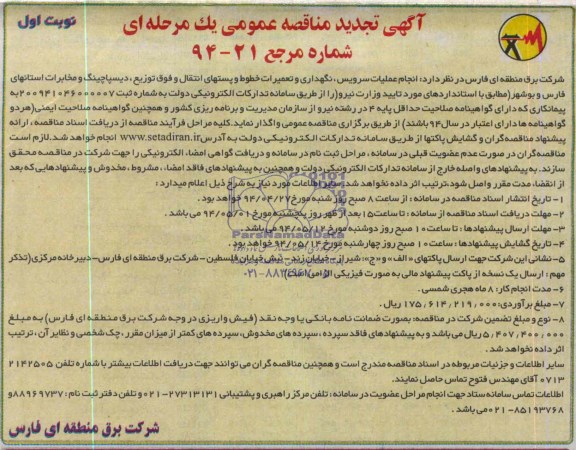 آگهی تجدید مناقصه عمومی یك مرحله ای
نوبت اول
شماره مرجع ۲۱-۹۴
شرکت برق منطقه ای فارس در نظر دارد؛ انجام عملیات سرویس، نگهداری و تعمیرات خطوط و پستهای انتقال و فوق توزیع، دیسپاچینگ و مخابرات استانهای
فارس و بوشهر(مطابق با استانداردهای مورد تایید وزارت نیرو)را از طریق سامانه تدارکات الکترونیکی دولت به شماره ثبت ۲۰۰۹۴۱۰۴۶۰۰۰۰۰۷به
پیمانکاری که دارای گواهینامه صلاحیت حداقل پایه ۴ در رشته نیرو از سازمان مدیریت و برنامه ریزی کشور و همچنین گواهینامه صلاحیت ایمنی(هردو
گواهینامه ها دارای اعتبار در سال۹۴ باشند) از طریق برگزاری مناقصه عمومی واگذار نماید.کلیه مراحل فرآیند مناقصه از دریافت اسناد مناقصه، ارائه
پیشنهاد مناقصه گران و گشایش پاکتها از طریق سامانه تدارکات الکترونیکی دولت به آدرس www.setadiran.ir انجام خواهد شد.لازم است
مناقصه گران در صورت عدم عضویت قبلی در سامانه، مراحل ثبت نام در سامانه و دریافت گواهی امضاء الکترونیکی را جهت شرکت در مناقصه محقق
سازند. به پیشنهادهای واصله خارج از سامانه تدارکات الکترونیکی دولت و همچنین به پیشنهادهای فاقد امضاء، مشروط، مخدوش و پیشنهادهایی که بعد
از انقضاء مدت مقرر واصل شود،ترتیب اثر داده نخواهد شد.سایر اطلاعات مورد نیاز به شرح ذیل اعلام میدارد:
۱- تاریخ انتشار اسناد مناقصه در سامانه : از ساعت ۸ صبح روز شنبه مورخ ۹۴/۰۴/۲۷ خواهد بود.
۲- مهلت دریافت اسناد مناقصه از سامانه : تا ساعت۱۵ بعد از ظهر روز پنجشنبه مورخ ۹۴/۰۵/۰۱ می باشد .
۳- مهلت ارسال پیشنهادها : تا ساعت ۱۰ صبح روز دوشنبه مورخ ۹۴/۰۵/۱۲ می باشد.
۴- تاریخ گشایش پیشنهادها : ساعت ۱۰ صبح روز چهارشنبه مورخ ۹۴/۰۵/۱۴ خواهد بود.
۵- نشانی این شرکت جهت ارسال پاکتهای «الف» و «ج»: شیراز- خیابان زند- نبش خیابان فلسطین- شرکت برق منطقه ای فارس-دبیرخانه مرکزی(تذکر
مهم : ارسال یک نسخه از پاکت پیشنهاد مالی به صورت فیزیکی الزامی است)
۶- مدت انجام کار: ۸ ماه هجری شمسی .
۷- مبلغ برآوردی: ۱۷۵,۶۱۴,۲۱۹,۰۰۰ ریال.
۸- نوع و مبلغ تضمین شرکت در مناقصه: بصورت ضمانت نامه بانکی یا وجه نقد (فیش واریزی در وجه شرکت برق منطقه ای فارس) به مبلغ
۵,۴۰۷,۴۰۰,۰۰۰ ریال می باشد و به پیشنهادهای فاقد سپرده، سپرده های مخدوش، سپرده های کمتر از میزان مقرر، چک شخصی و نظایر آن، ترتیب
اثر داده نخواهد شد.
سایر اطلاعات و جزئیات مربوطه در اسناد مناقصه مندرج است و همچنین مناقصه گران می توانند جهت دریافت اطلاعات بیشتر با شماره تلفن ۲۱۴۲۵۰۵
۰۷۱۳ آقای مهندس فتوح تماس حاصل نمایند.
اطلاعات تماس سامانه ستاد جهت انجام مراحل عضویت در سامانه: تلفن مرکز راهبری و پشتیبانی ۲۷۳۱۳۱۳۱-۰۲۱ و تلفن دفتر ثبت نام: ۸۸۹۶۹۷۳۷و
۸۵۱۹۳۷۶۸-۰۲۱ می باشد .
شرکت برق منطقه ای فارس
ParsNamadData